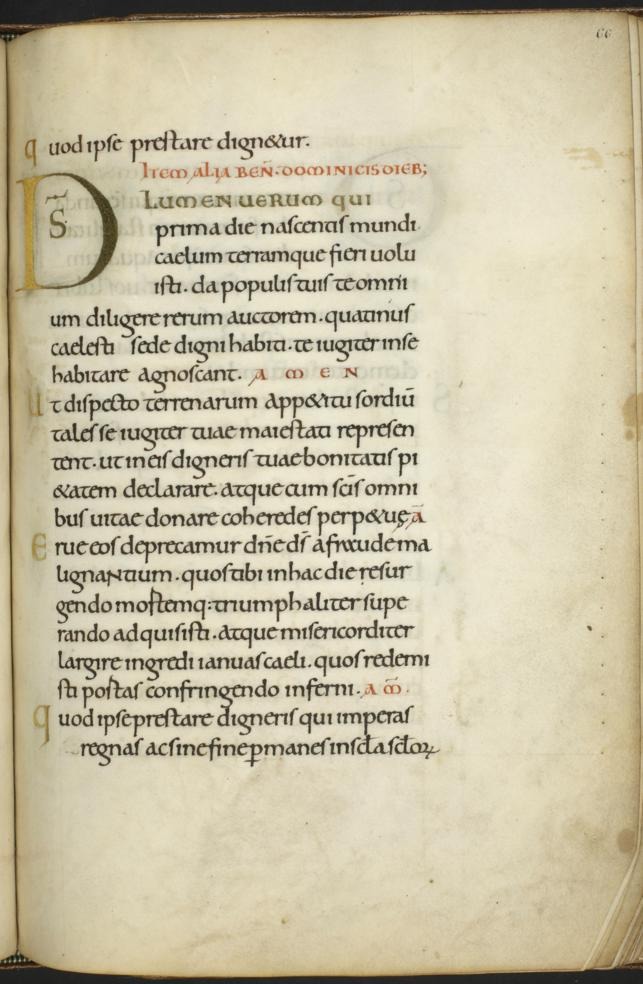 66
quod ipse prestare dign&ur.
Item alia ben̄. dominicis dieb;
Ds̄ lumen uerum qui
prima die nascentis mundi
caelum terramque fieri uolu
isti. da populis tuis te omni
um diligere rerum auctorem. quatinus
caelesti sede digni habiti. te iugiter inse
habitare agnoscant. amen
ut dispecto terrenarum app&itu sordiū
tales se iugiter tuae maiestati represen
tent. ut in eis digneris tuae bonitatis pi
&atem declarare. atque cum sc̄is omni
bus uitae donare coheredes perp&uę. ā
erue eos deprecamur dn̄e ds̄ a fraude ma
lignantium. quos tibi in hac die resur
gendo mortemq: triumphaliter supe
rando adquisisti. atque misericorditer
largire ingredi ianuas caeli. quos redemi
sti portas confringendo inferni. am̄.
quod ipse prestare digneris qui imperas
regnas ac sine fine ꝑmanes in scl̄a scl̄oꝝ